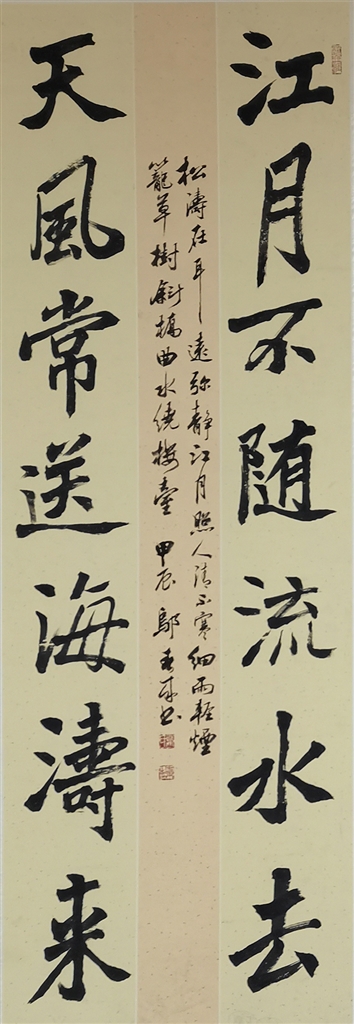 江月不随流水去
松濤在耳遠弥静江月照人清不寒細雨輕煙
籠草樹斜橋曲水繞樓臺 甲辰 鄔
天風常送海濤来